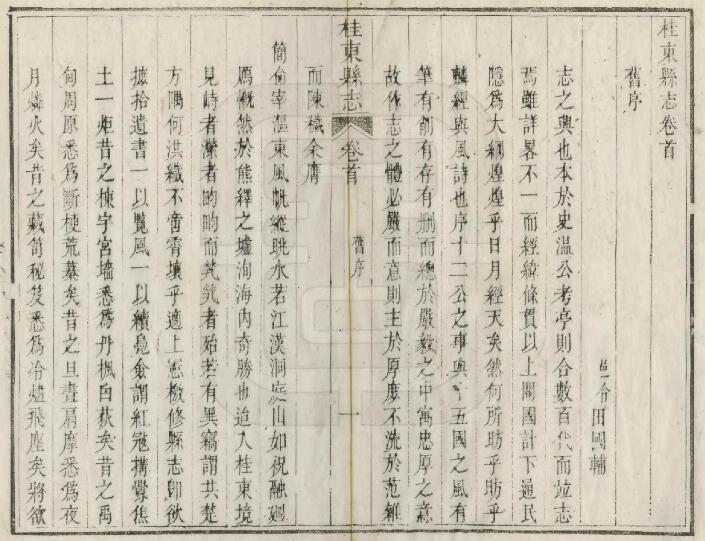 桂東縣志卷首
舊序
邑令田國輔
志之興也本於史溫公考亭則合數百代而竝志
焉雖詳畧不一而經緯條貫以上關國計下逼民
隱爲大綱煌煌乎日月經天矣然何所昉乎昉乎
麟經與風詩也序十二公之事與十五國之風有
筆有削有存有刪而總於嚴毅之中寓忠厚之意
故作志之體必嚴而意則主於厚庶不洗於范雖
桂東縣志 卷首 舊序 一
而陳穢余膺
簡命宰滬東風帆縱眺水若江漢洞庭山如祝融廻
鴈慨然於熊繹之墟洵海內奇勝也迨入桂東境
見峙者濼者畇畇而芃芃者殆若有異竊謂共楚
方隅何洪纖不啻霄壤乎適上憲檄修縣志卽欲
摭拾遺書一以覽風一以續堯僉謂紅寇搆釁焦
土一炬昔之棟宇宮墻悉爲丹楓白荻矣昔之禹
甸周原悉爲斷梗荒蓁矣昔之旦晝肩摩悉爲夜
月燐火矣昔之藏笥秘笈悉爲冷燼飛塵矣將欲